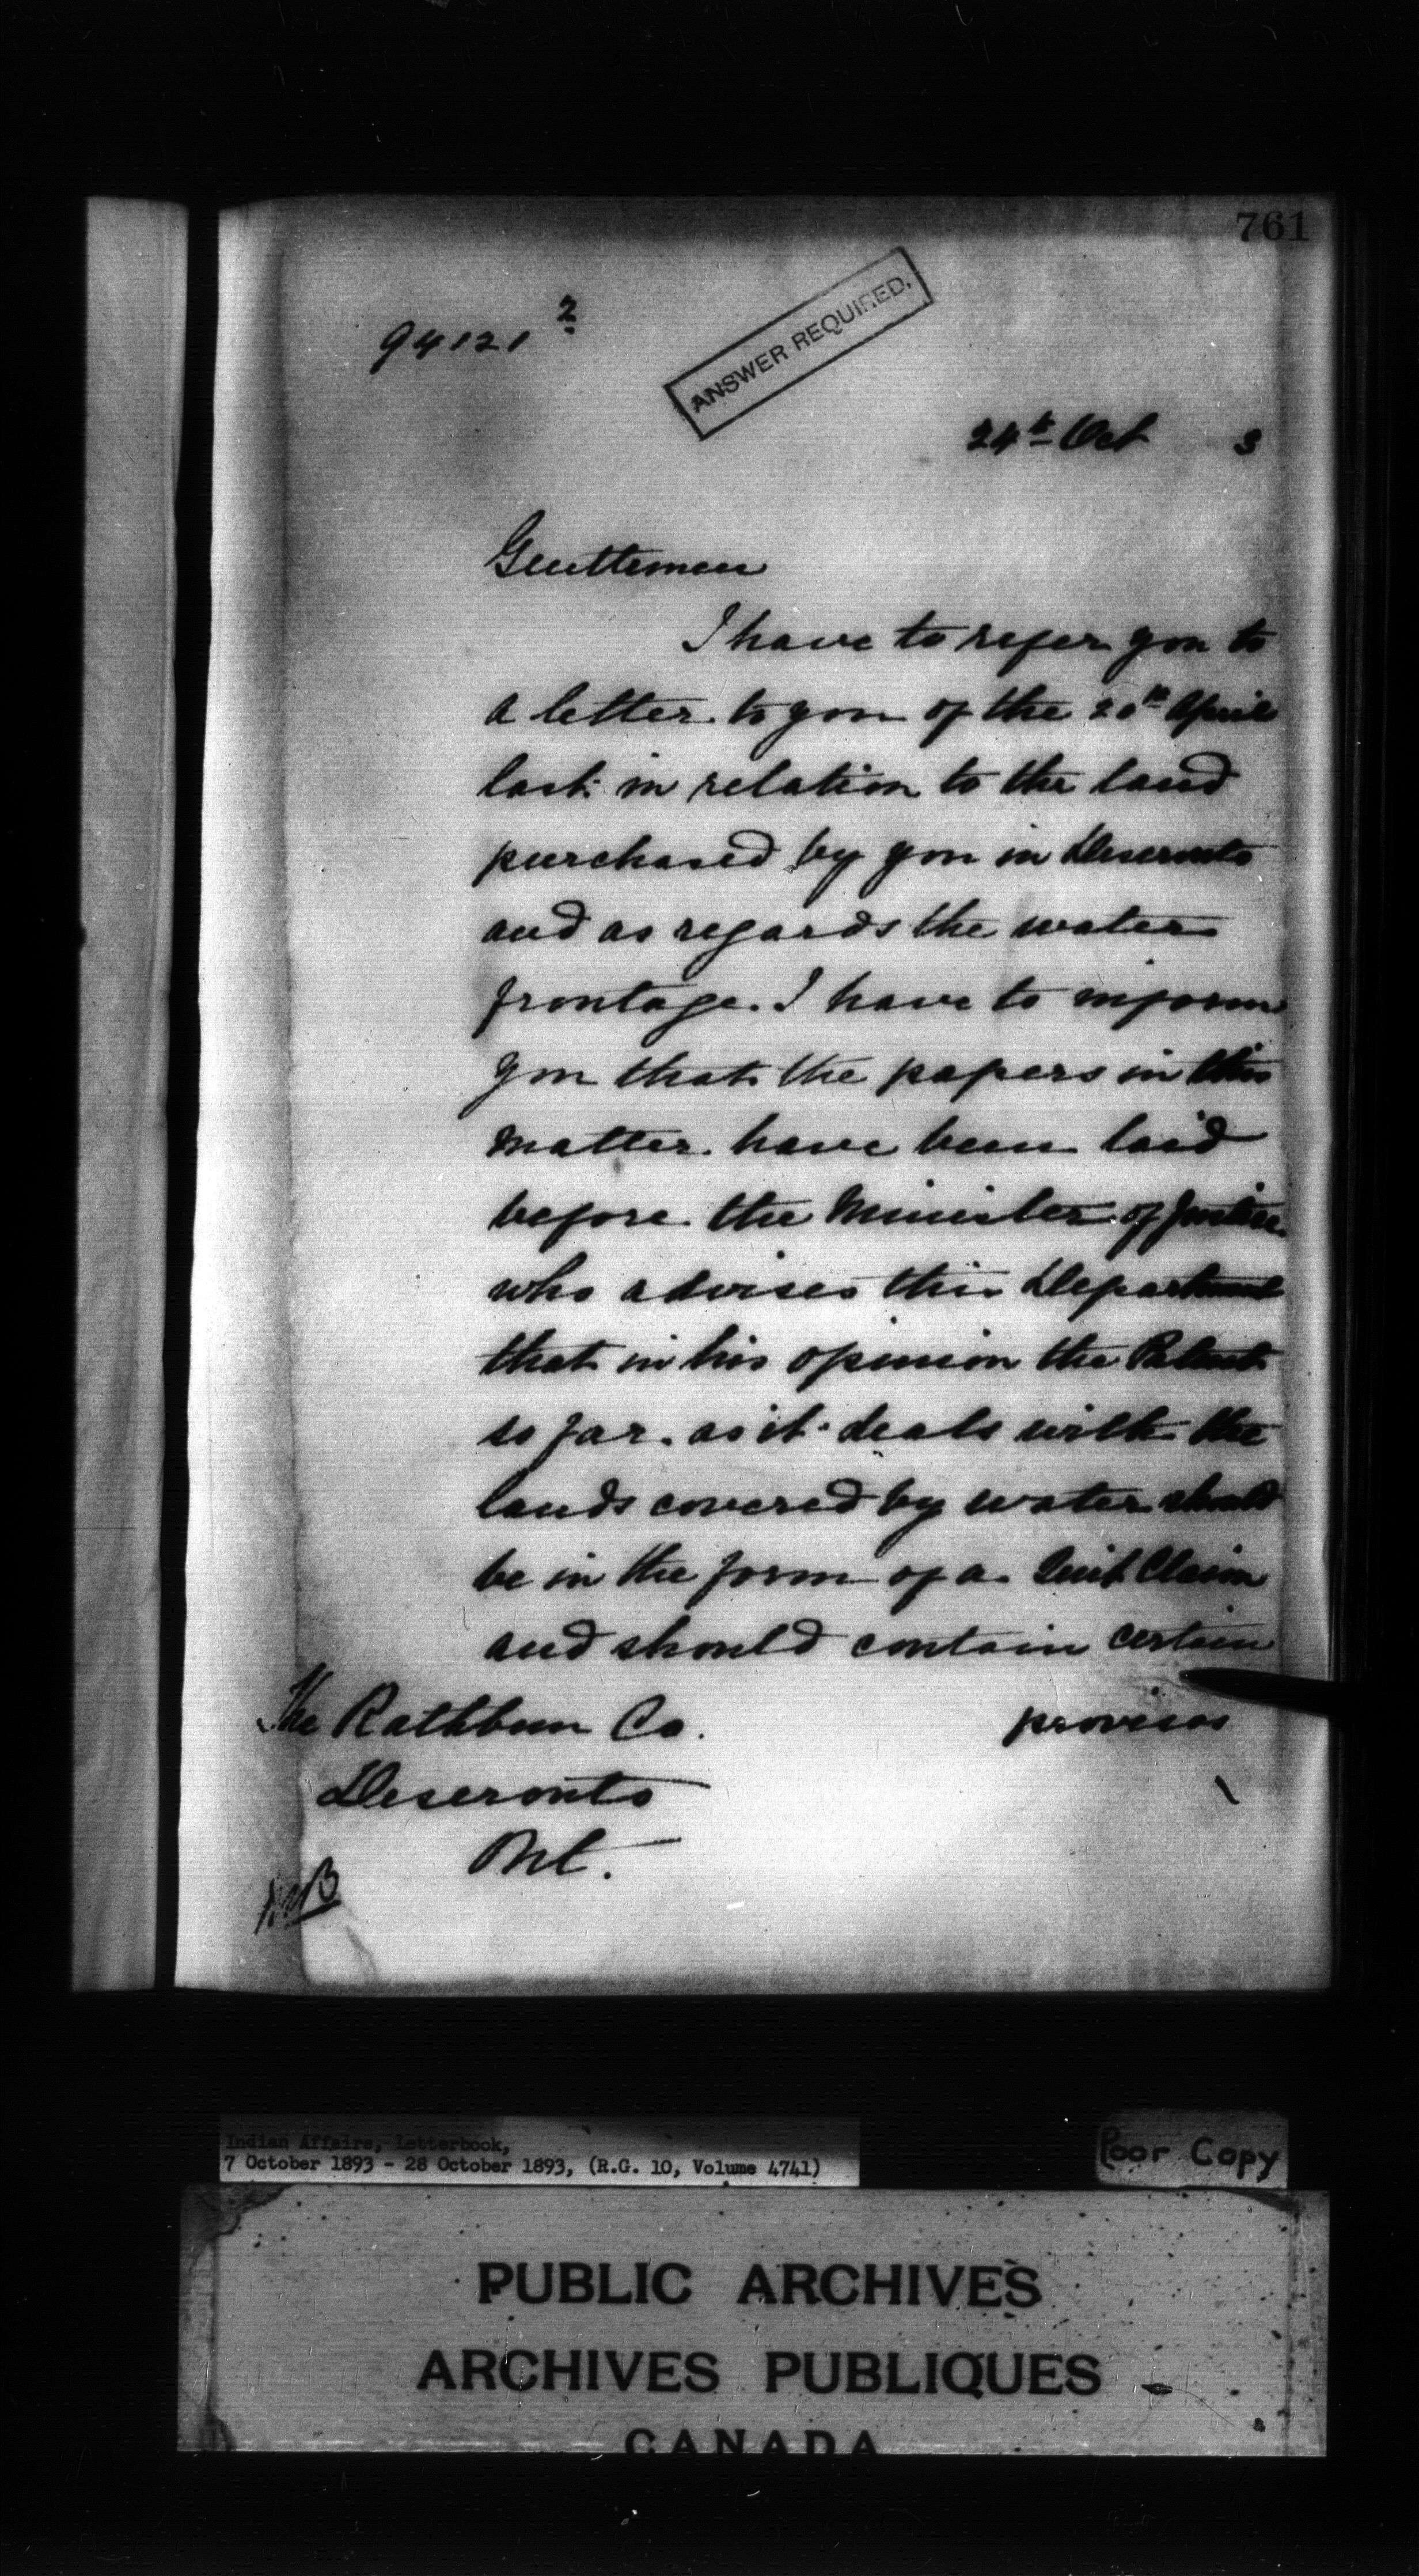 761
94121 2
ANSWER REQUIRED.
24th Oct 3
Gentlemen
I have to refer you to
a letter to you of the 20th April
last in relation to the land
purchased by you in Deseronto
and as regards the water
frontage. I have to inform
you that the papers in this
matter have been laid
before the Minister of Justice
who advises this Department
that in his opinion the Patent
so far as it deals with the
lands covered by water should
be in the form of a Quit Claim
and should contain certain
provisos
The Rathbun Co.
Deseronto
Ont.
Indian Affairs, Letterbook,
7 October 1893 - 28 October 1893, (R.G. 10, Volume 4741)
Poor Copy
PUBLIC ARCHIVES
ARCHIVES PUBLIQUES
CANADA